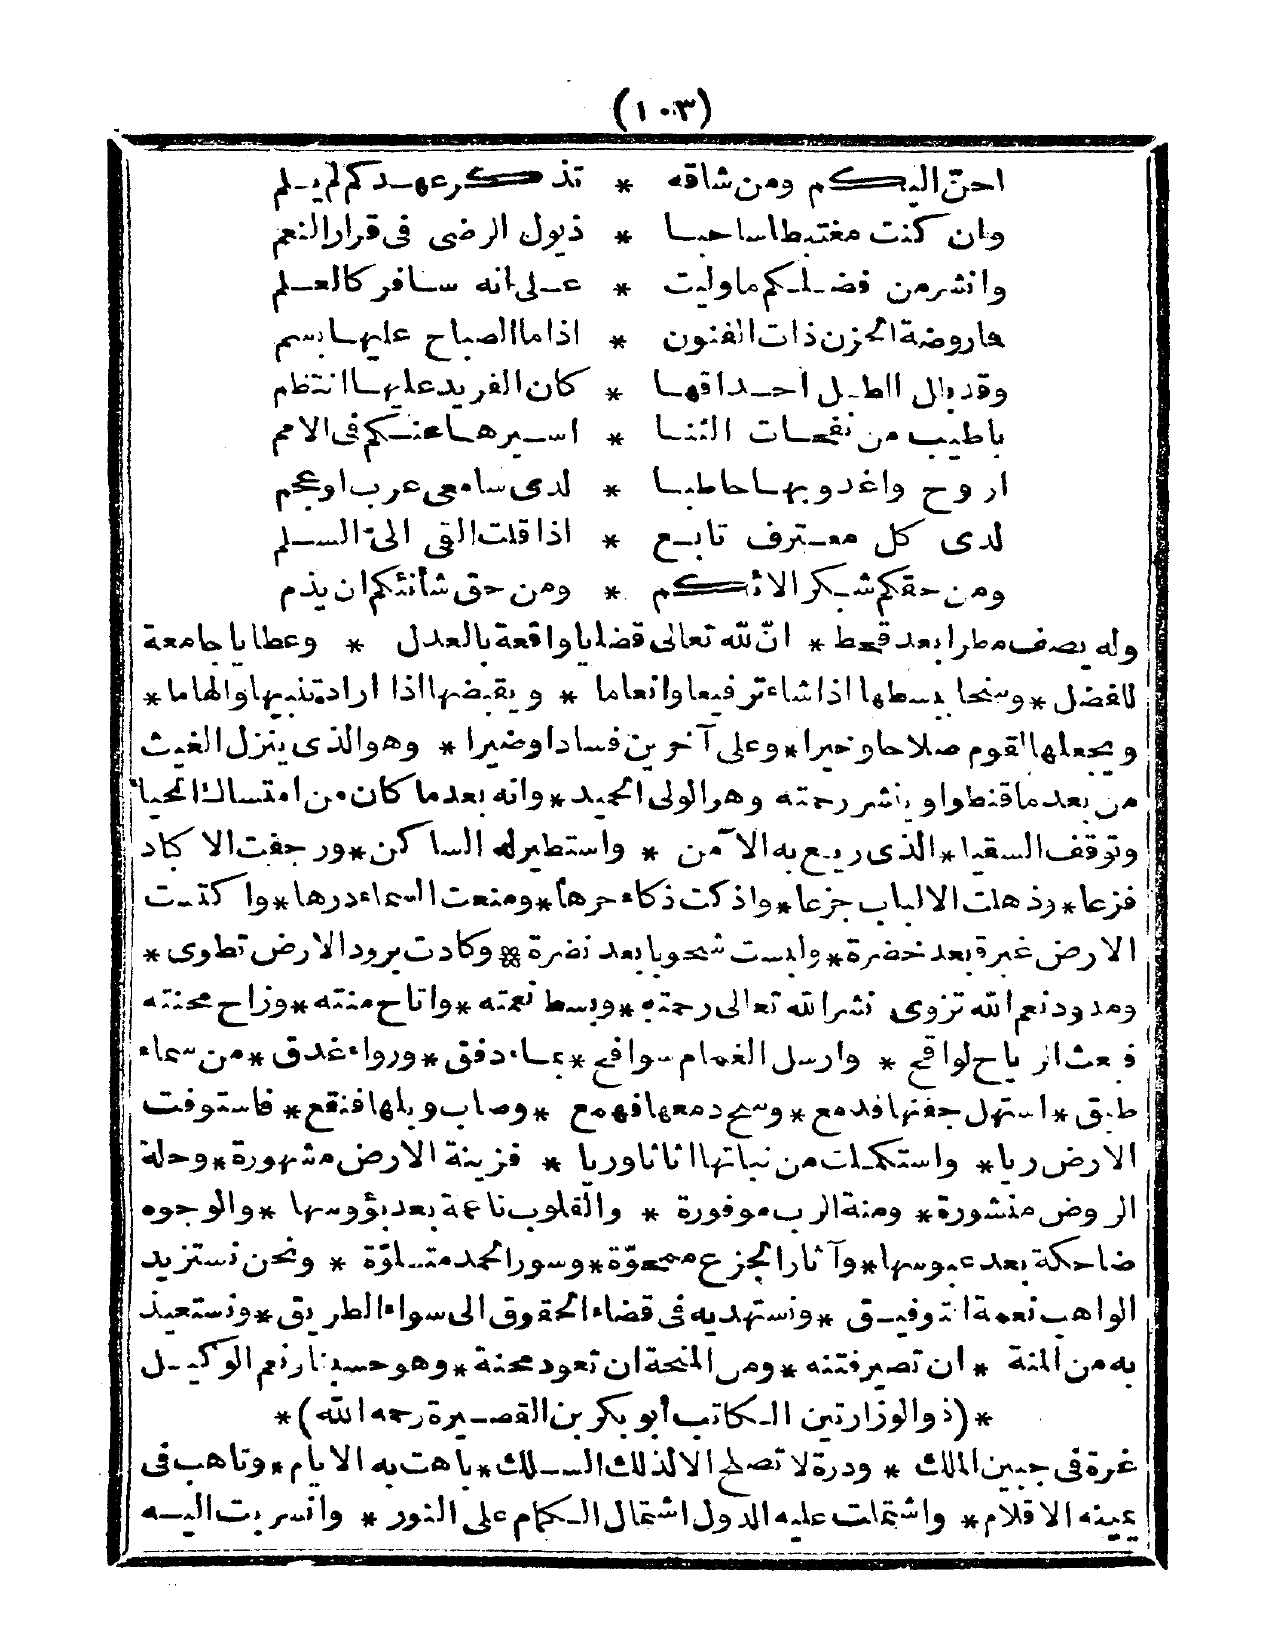 (١٠٣)
احنّ اليكم ومن شاقه * تذكر عهدكم لم يلم
وان كنت مغتبطا ساحبا * ذيول الرضى فى قرار النعم
وانشر من فضلكم ما وليت * على انه سافر كالعلم
فاروضة الحزن ذات الفنون * اذا ما الصباح عليها بسم
وقد بال الطل احداقها * كان الفريد عليها انتظم
باطيب من نفحات الثنا * اسيرها عنكم فى الامم
اروح واغدو بها خاطبا * لدى سامعى عرب او عجم
لدى كل معترف تابع * اذا قلت القى الىّ السلم
ومن حقكم شكر الائكم * ومن حق شأنئكم ان يذم
وله يصف مطرا بعد قحط * انّ لله تعالى قضايا واقعة بالعدل * وعطايا جامعة
للفضل * ومنحا يبسطها اذا شاء ترفيعا وانعاما * ويقبضها اذا اراد تنبيها والهاما *
ويجعلها لقوم صلاحا وخيرا * وعلى آخرين فسادا وضيرا * وهو الذى ينزل الغيث
من بعد ما قنطوا وينشر رحمته وهو الولى الحميد * وانه بعد ما كان من امتساك الحيا
وتوقف السقيا * الذى ريع به الآمن * واستطير له الساكن * ورجفت الاكباد
فزعا * وذهلت الالباب جزعا * واذكت ذكاء حرها * ومنعت السماء درها * واكتست
الارض غبرة بعد خضرة * ولبست شحوبا بعد نضرة * وكادت برود الارض تطوى *
ومدود نعم الله تزوى نشر الله تعالى رحمته * وبسط نعمته * واتاح منته * وزاح محنته
فبعث الرياح لواقح * وارسل الغمام سوافح * بماء دفق * ورواء غدق * من سماء
طبق * استهل جفنها فدمع * وسمح دمعها فهمع * وصاب وبلها فنقع * فاستوفت
الارض ريا * واستكملت من نباتها اثاثا وريا * فزينة الارض مشهورة * وحلة
الروض منشورة * ومنة الرب موفورة * والقلوب ناعمة بعد بؤوسها * والوجوه
ضاحكة بعد عبوسها * وآثار الجزع ممحوّة * وسور الحمد متلوّة * ونحن نستزيد
الواهب نعمة التوفيق * ونستهديه فى قضاء الحقوق الى سواء الطريق * ونستعيذ
به من المنة * ان تصير فتنه * ومن المنحة ان تعود محنة * وهو حسبنا ونعم الوكيل
* (ذو الوزارتين الكاتب أبو بكر بن القصيرة رحمه الله) *
غرة فى جبين الملك * ودرة لا تصلح الا لذلك السلك * باهت به الايام * وتاهت فى
يمينه الاقلام * واشتملت عليه الدول اشتمال الكمام على النور * وانسربت اليه